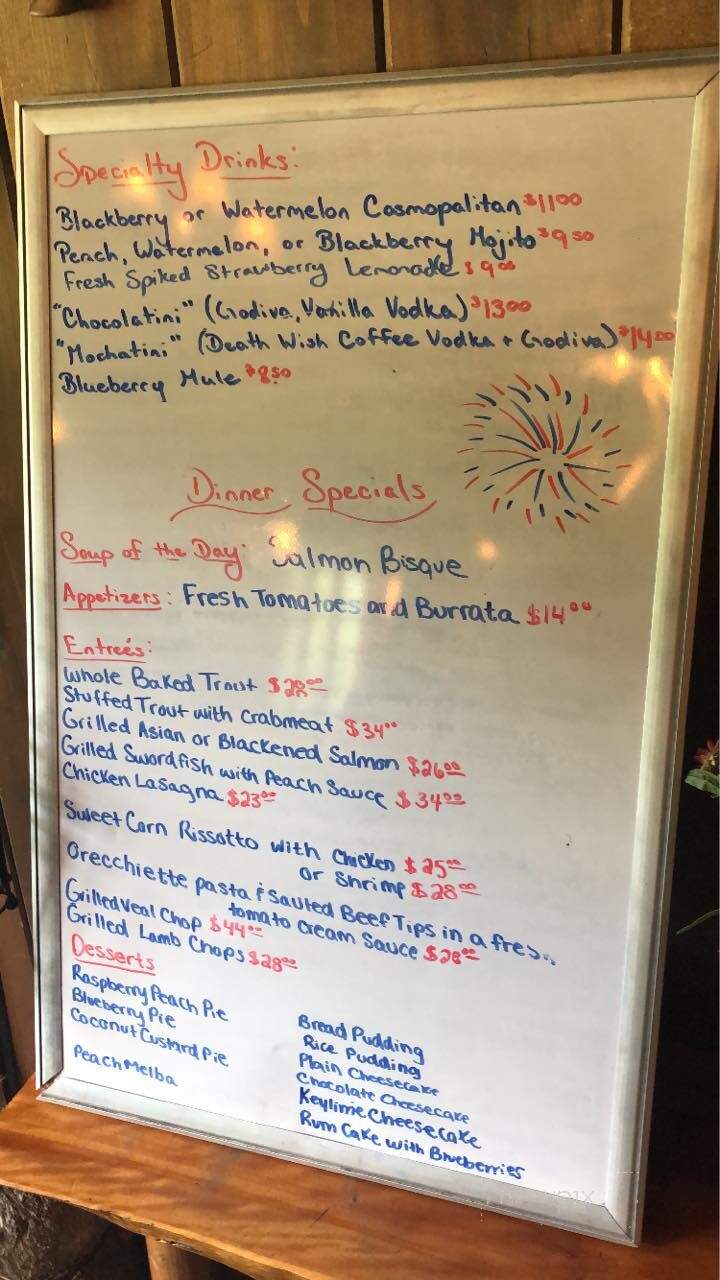 Specialty Drinks:
Blackberry or Watermelon Cosmopolitan $11.00
Peach, Watermelon, or Blackberry Mojito $9.50
Fresh Spiked Strawberry Lemonade $9.00
"Chocolatini" (Godiva, Vanilla Vodka) $13.00
"Mochatini" (Death Wish Coffee Vodka + Godiva) $14.00
Blueberry Mule $8.50
Dinner Specials
Soup of the Day: Salmon Bisque
Appetizers: Fresh Tomatoes and Burrata $14.00
Entreés:
Whole Baked Trout $28.00
Stuffed Trout with Crabmeat $34.00
Grilled Asian or Blackened Salmon $26.00
Grilled Swordfish with Peach Sauce $34.00
Chicken Lasagna $23.00
Sweet Corn Rissotto with Chicken $25.00
or Shrimp $28.00
Orecchiette pasta & Sauted Beef Tips in a fres
tomato cream Sauce $28.00
Grilled Veal Chop $44.00
Grilled Lamb Chops $28.00
Desserts
Raspberry Peach Pie
Blueberry Pie
Coconut Custard Pie
Peach Melba
Bread Pudding
Rice Pudding
Plain Cheesecake
Chocolate Cheesecake
Keylime Cheesecake
Rum Cake with Blueberries